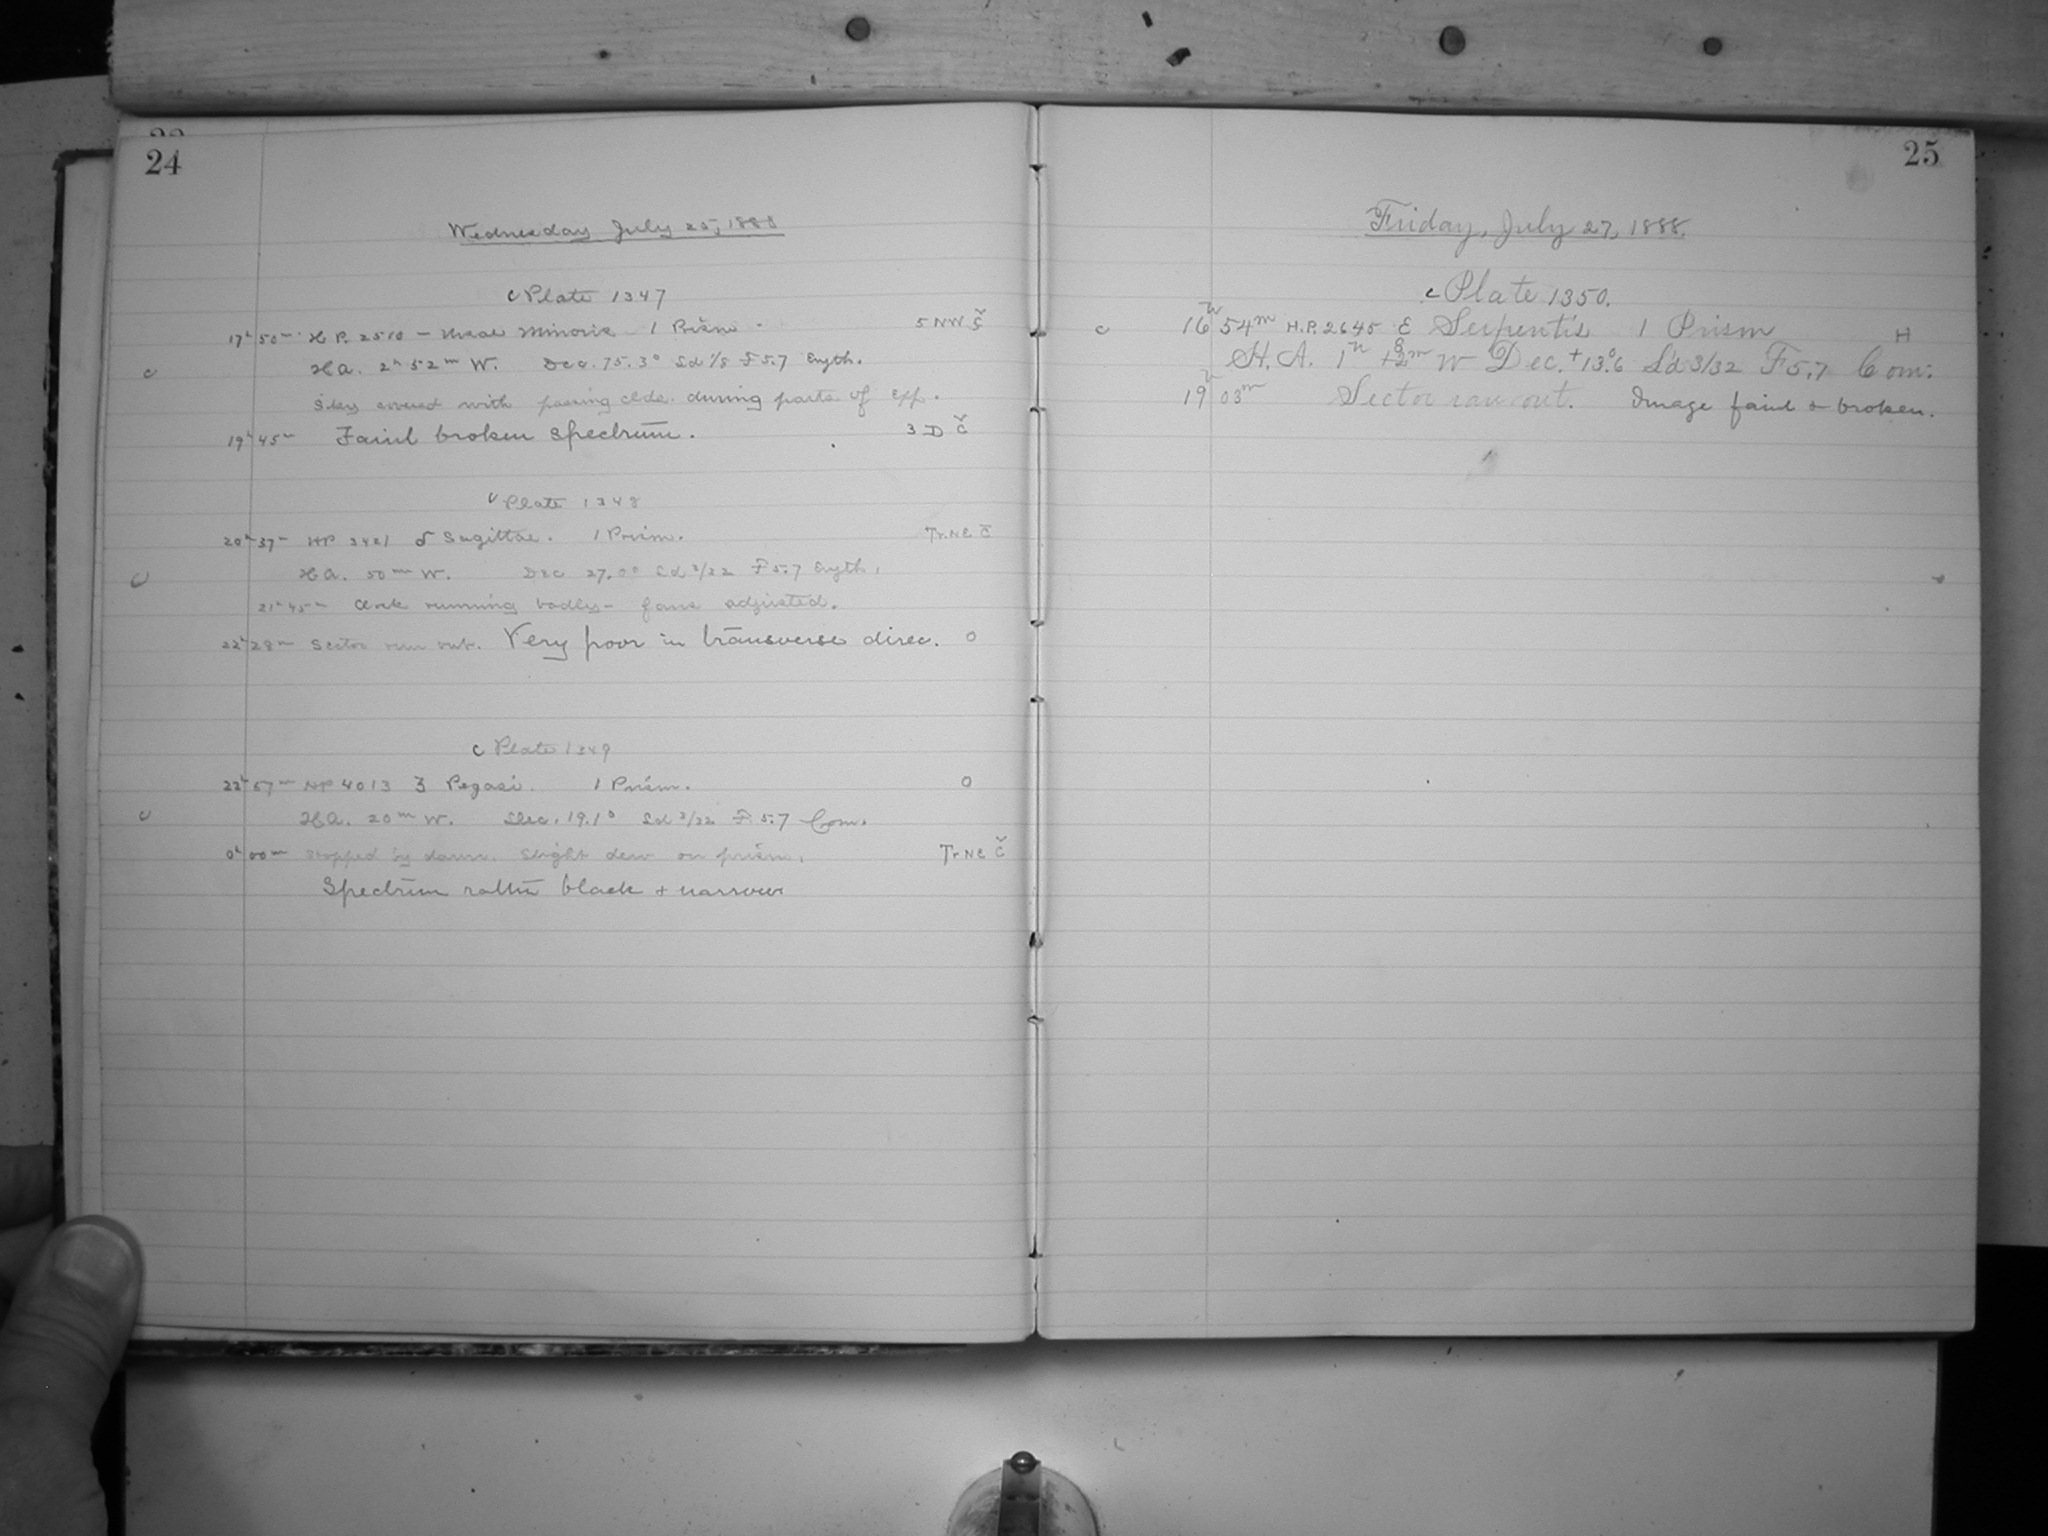 24
Wednesday July 25, 1888
c Plate 1347
17h 50m H.P. 2510 - Ursae Minoris 1 Prism. 5 NW č
c H.A. 2h 52m W. Dec. 75.3° Sd 1/8 F 5.7 Eryth.
Sky covered with passing clds. during parts of exp.
19h 45m Faint broken spectrum. 3 D č
c Plate 1348
20h 37m HP 3421 δ Sagittae. 1 Prism. Tr. NE č
c H.A. 50m W. Dec 27.0° Sd 3/32 F 5.7 Eryth.
21h 45m Clock running badly - fans adjusted.
22h 28m Sector run out. Very poor in transverse direc. 0
c Plate 1349
22h 57m HP 4013 ζ Pegasi. 1 Prism. 0
c H.A. 20m W. Dec. 19.1° Sd 3/32 F 5.7 Com.
0h 00m Stopped by dawn. Slight dew on prism. Tr NE č
Spectrum rather black + narrow
25
Friday, July 27, 1888.
c Plate 1350.
c 16h 54m H.P. 2645 ε Serpentis 1 Prism H
H. A. 1h 8m W Dec. +13.°6 Sd 3/32 F 5.7 Com.
19h 03m Sector ran out. Image faint & broken.